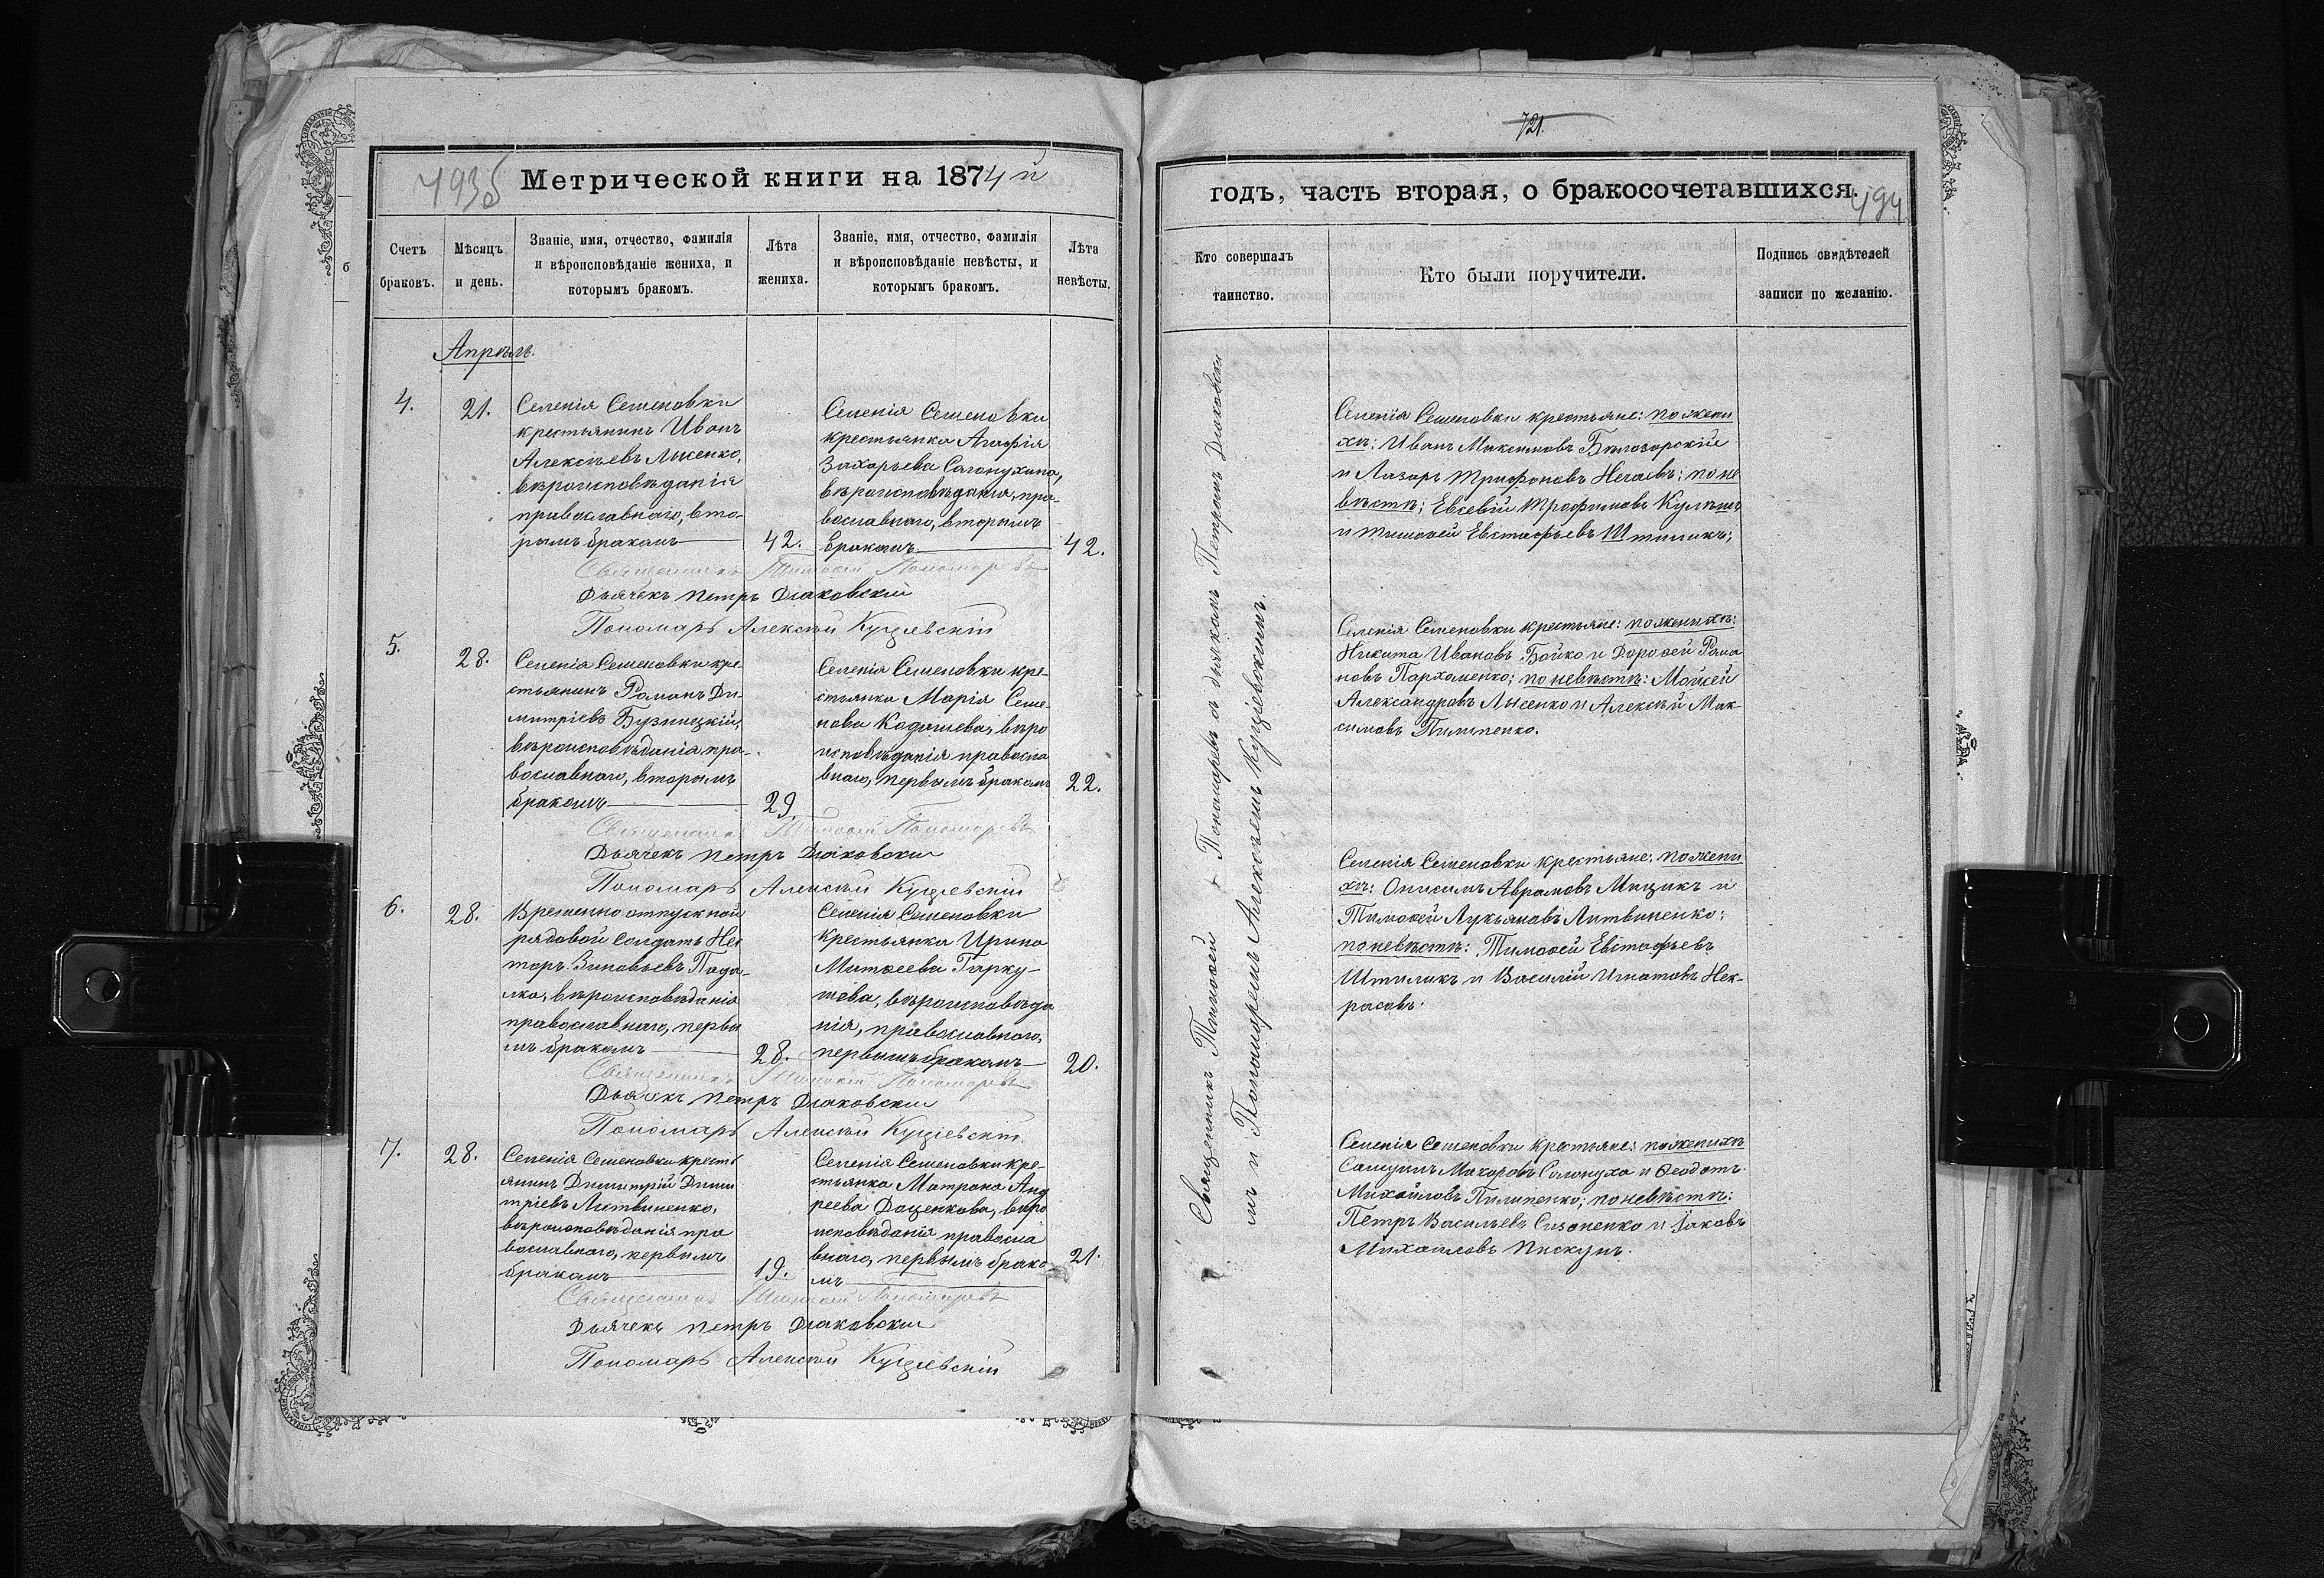 493б
Метрической книги на 1874й
Счетъ браковъ.
Мѣсяцъ и день.
Званіе, имя, отчество, фамилія и вѣроисповѣданіе жениха, и которымъ бракомъ.
Лѣта жениха.
Званіе, имя, отчество, фамилія и вѣроисповѣданіе невѣсты, и которымъ бракомъ.
Лѣта невѣсты.
Апрѣль.
4.
21.
Селенія Семеновки
крестьянинъ Иванъ
Алексѣевъ Лысенко,
вѣроисповѣданія
православнаго, вто-
рымъ бракомъ
42.
Селенія Семеновки
крестьянка Агафія
Захарьева Салопухина,
вѣроисповѣданія, пра-
вославнаго, вторымъ
бракомъ
42.
Священникъ Тимоѳей Пономаревъ
Дьячекъ Петръ Діаковскій
Пономарь Алексѣй Куціевскій
5.
28.
Селенія Семеновки кре-
стьянинъ Романъ Ди-
митріевъ Бузницкій,
вѣроисповѣданія, пра-
вославнаго, вторымъ
бракомъ
29.
Селенія Семеновки кре-
стьянка Марія Семе-
нова Кодашева, вѣро
исповѣданія правосла
внаго, первымъ бракомъ
22.
Священникъ Тимоѳей Пономаревъ
Дьячекъ Петръ Діаковскій
Пономарь Алексѣй Куціевскій
6.
28.
Временно отпускной
рядовой солдатъ Нес
торъ Зиновьевъ Пода-
лка, вѣроисповѣданія
православнаго, первы
мъ бракомъ
28.
Селенія Семеновки
крестьянка Ирина
Матѳеева Гарку-
шева, вѣроисповѣда
нія, православнаго,
первымъ бракомъ
20.
Священникъ Тимоѳей Пономаревъ
Дьячекъ Петръ Діаковскій
Пономарь Алексѣй Куціевскій
7.
28.
Селенія Семеновки кресть
янинъ Димитрій Дими
тріевъ Литвиненко,
вѣроисповѣданія пра
вославнаго, первымъ
бракомъ
19.
Селенія Семеновки кре-
стьянка Матрона Анд
реева Доценкова, вѣро
исповѣданія правосла
внаго, первымъ брако
мъ
21.
Священникъ Тимоѳей Пономаревъ
Дьячекъ Петръ Діаковскій
Пономарь Алексѣй Куціевскій
721.
годъ, часть вторая, о бракосочетавшихся.
494
Кто совершалъ таинство.
Кто были поручители.
Подпись свидѣтелей записи по желанію.
Священникъ Тимоѳей Пономаревъ съ дьячкомъ Петромъ Діаковски
мъ и Пономаремъ Алексѣемъ Куціевскимъ.
Селенія Семеновки крестьяне: по жени
хѣ: Иванъ Максимовъ Бѣлозорскій
и Лазарь Трифоновъ Нечаевъ; по не
вѣстѣ: Евсевій Трофимовъ Кулѣшъ
и Тимоѳей Евстафьевъ Штиликъ;
Селенія Семеновки крестьяне: по женихѣ:
Никита Ивановъ Бойко и Дороѳей Рома
новъ Пархоменко; по невѣстѣ: Мойсей
Александровъ Лысенко и Алексѣй Мак-
симовъ Пилипенко.
Селенія Семеновки крестьяне: по жени
хѣ: Онисимъ Аврамовъ Мицикъ и
Тимоѳей Лукьяновъ Литвиненко;
по невѣстѣ: Тимоѳей Евстафьевъ
Штиликъ и Василій Игнатовъ Нек-
расовъ.
Селенія Семеновки крестьяне: по женихѣ
Макаровъ Салопуха и Ѳеодотъ
Михайловъ Пилипенко; по невѣстѣ:
Петръ Васильевъ Сизоненко и Іаковъ
Михайловъ Пискунъ.